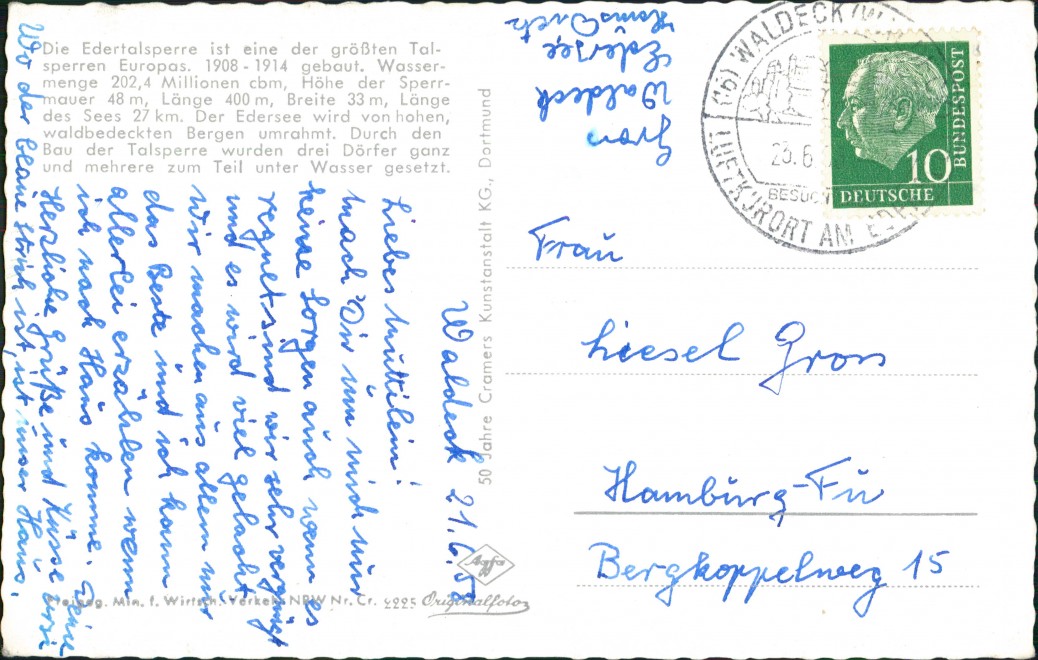 Die Edertalsperre ist eine der größten Tal-
sperren Europas. 1908-1914 gebaut. Wasser-
menge 202,4 Millionen cbm, Höhe der Sperr-
mauer 48 m, Länge 400 m, Breite 33 m, Länge
des Sees 27 km. Der Edersee wird von hohen,
waldbedeckten Bergen umrahmt. Durch den
Bau der Talsperre wurden drei Dörfer ganz
und mehrere zum Teil unter Wasser gesetzt.
Waldeck 21.6.58
Liebes Muttilein!
Mach Dir um mich nur
keine Sorgen auch wenn es
regnet sind wir sehr vergnügt
und es wird viel gelacht.
Wir machen aus allem nur
das Beste und ich kann
allerlei erzählen wenn
ich nach Haus komme.
Herzliche Grüße und Küsse Deine
Wo der blaue Strich ist, ist unser Haus.
50 Jahre Cramers Kunstanstalt KG., Dortmund
Agfa
Originalfoto
Min. f. Wirtsch. Verkehr NRW Nr. Cr.
Gron
Waldeck
Edersee
Haus
(16) WALDECK
23.6.
BESUCH
LUFTKURORT AM EDER
10
DEUTSCHE
BUNDESPOST
Frau
Liesel Gron
Hamburg-Fu
Bergkoppelweg 15